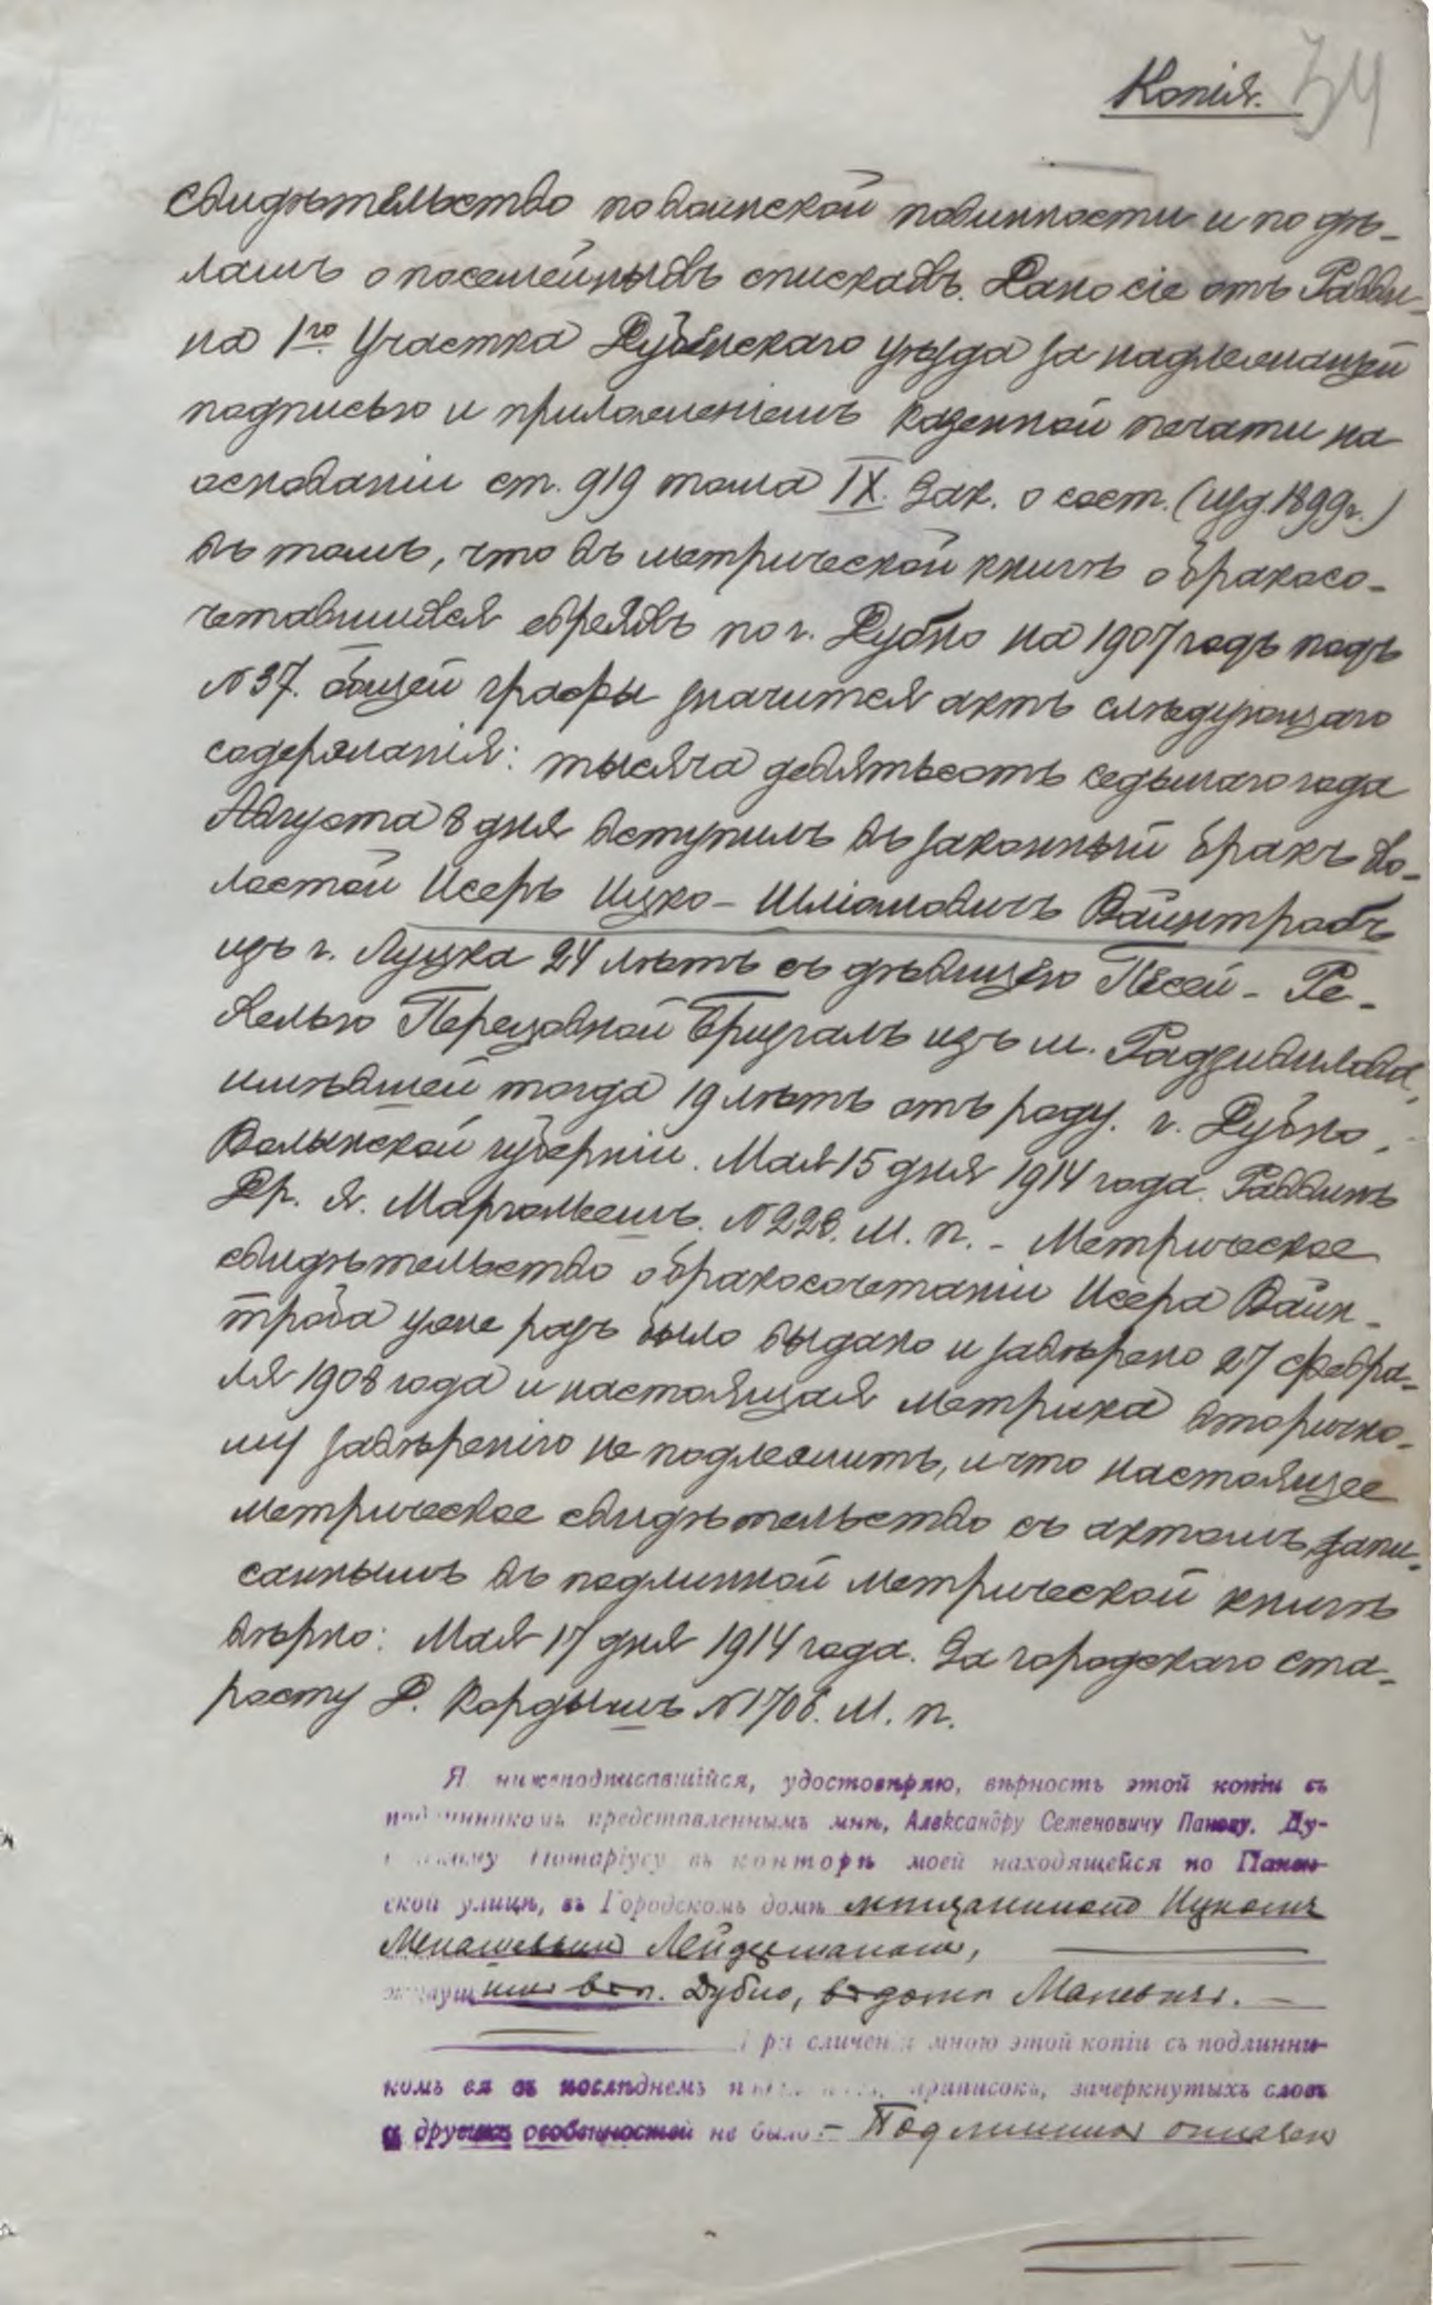 Копія. 34
Свидѣтельство по воинской повинности и по дѣ-
ламъ о посемейныхъ спискахъ. Дано сіе отъ Равви-
на 1го Участка Дубенскаго уѣзда за надлежащей
подписью и приложеніемъ казенной печати на
основаніи ст. 919 тома IX. Зак. о сост. (изд. 1899г.)
въ томъ, что въ метрической книгѣ о бракосо-
четавшихся евреяхъ по г. Дубно на 1907 годъ подъ
№ 37. общей графы значится актъ слѣдующаго
содержанія: тысяча девятьсотъ седьмаго года
Августа 8 дня вступилъ въ законный бракъ хо-
лостой Исеръ Ицко-Шліомовичъ Вайнтробъ
изъ г. Луцка 24 лѣтъ съ дѣвицею Песей-Ре-
хелью Перецовной Бризгалъ изъ м. Радзивилова,
имѣвшей тогда 19 лѣтъ отъ роду. г. Дубно,
Волынской губерніи. Мая 15 дня 1914 года. Раввинъ
Др. Я. Маргольешъ. № 228. М. п. - Метрическое
свидѣтельство о бракосочетаніи Исера Вайн-
троба уже разъ было выдано и завѣрено 27 Февра-
ля 1908 года и настоящая метрика вторично-
му завѣренію не подлежитъ, и что настоящее
метрическое свидѣтельство съ актомъ, запи-
саннымъ въ подлинной метрической книгѣ
вѣрно: Мая 17 дня 1914 года. За городского ста-
росту Д. Кордышъ № 1706. М. п.
Я нижеподписавшійся, удостовѣряю, вѣрность этой копіи съ
подлинникомъ представленнымъ мнѣ, Александру Семеновичу Панову, Ду-
Нотаріусу въ конторѣ моей находящейся по Панен-
ской улицѣ, въ Городскомъ домѣ мѣщаниномъ Ицкомъ
Лейдерманомъ,
живущимъ въ г. Дубно, въ домѣ
При сличеніи мною этой копіи съ подлинни-
комъ ея въ послѣднемъ приписокъ, зачеркнутыхъ словъ
и другихъ особенностей не было. - Подлинникъ